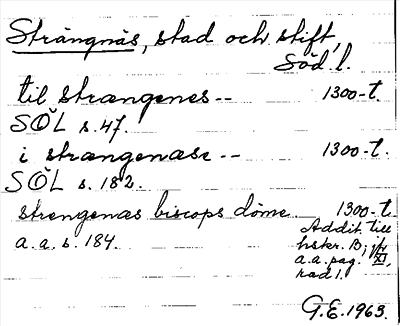 Strängnäs, stad och stift,
Söd l.
til strængenes -- 1300-t.
SÖL s. 47.
i strængenase -- 1300-t.
SÖL s. 182.
strengenæs biscops döme 1300-t.
a.a. s. 184. Addit. till
hskr. B; jfr
a.a. pag. XI,
rad 1.
G.E. 1963.